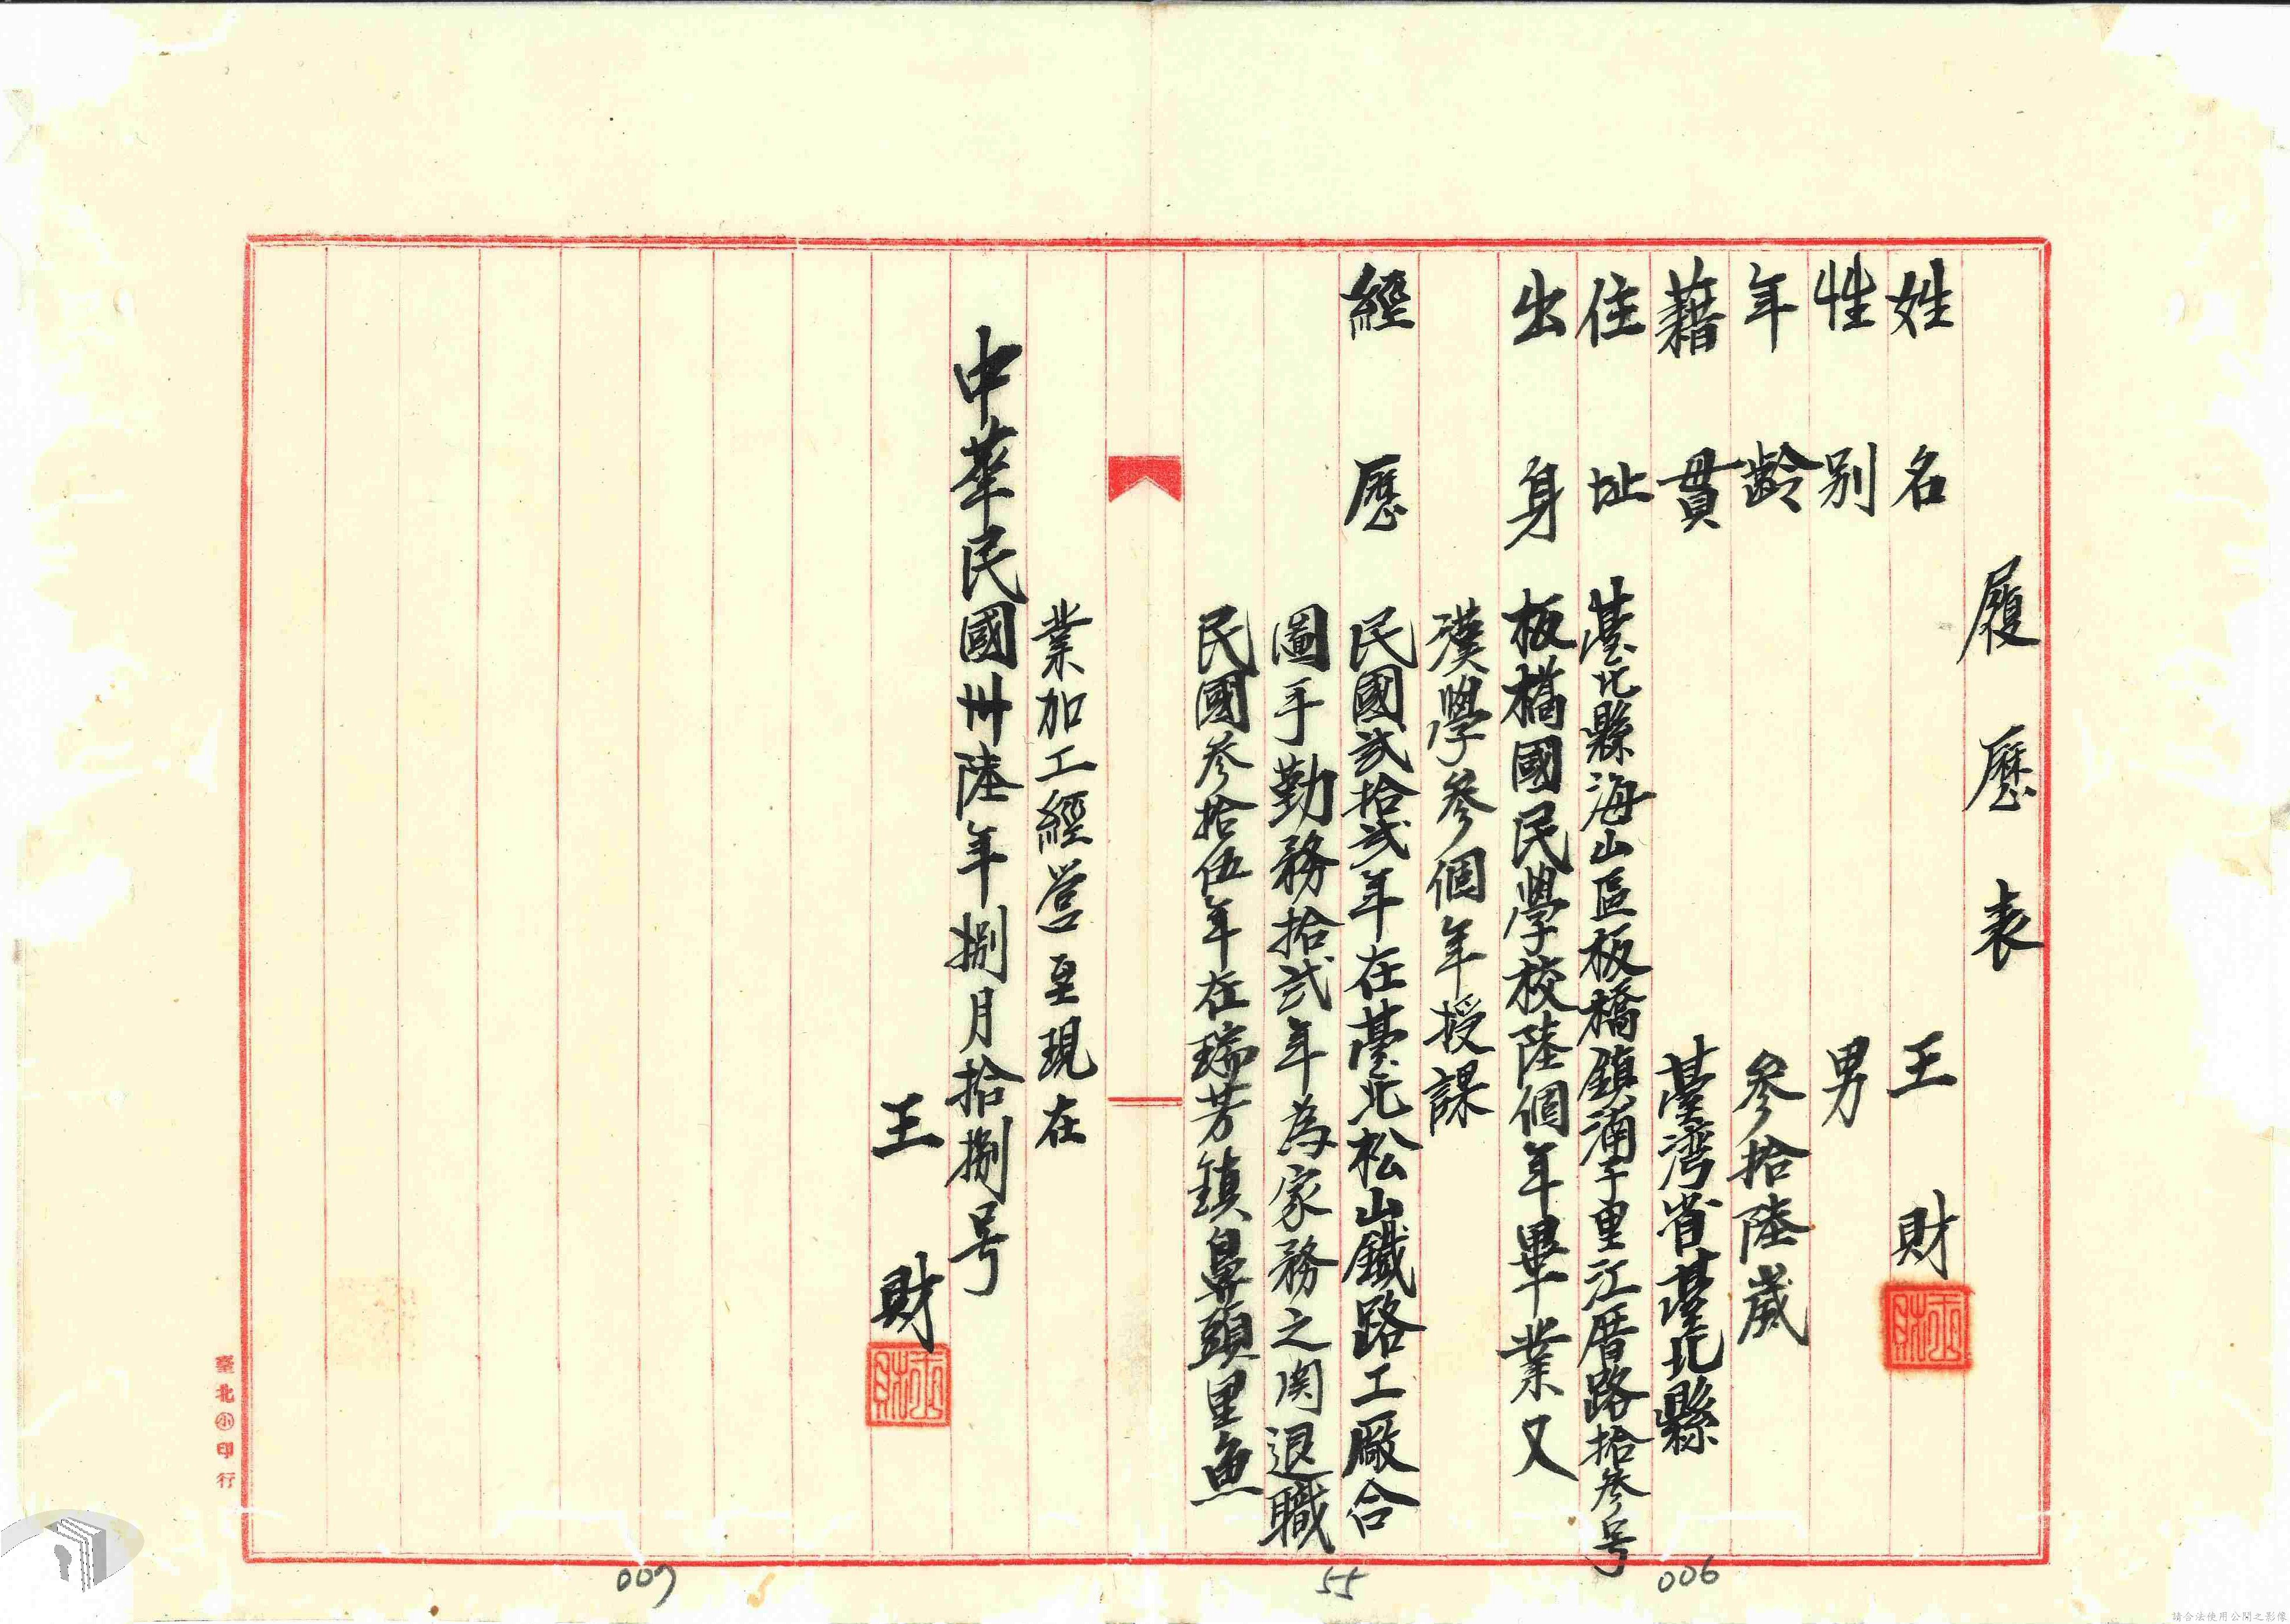 履歷表
姓名 王財
性別 男
年齡 參拾陸歲
藉貫 臺湾省臺北縣
住址 臺北縣海山區板橋鎮湳子里江厝路拾參号
出身 板橋國民學校陸個年畢業又
漢學參個年授課
經歷 民國弍拾弍年在臺北松山鐵路工廠合
圖手勤務拾弍年為家務之関退職
民國參拾伍年在瑞芳鎮鼻頭里魚
業加工經營至現在
中華民國卅陸年捌月拾捌号
王財
王財
王財
臺北㊋印行
007
55
006
請合法使用公開之影像